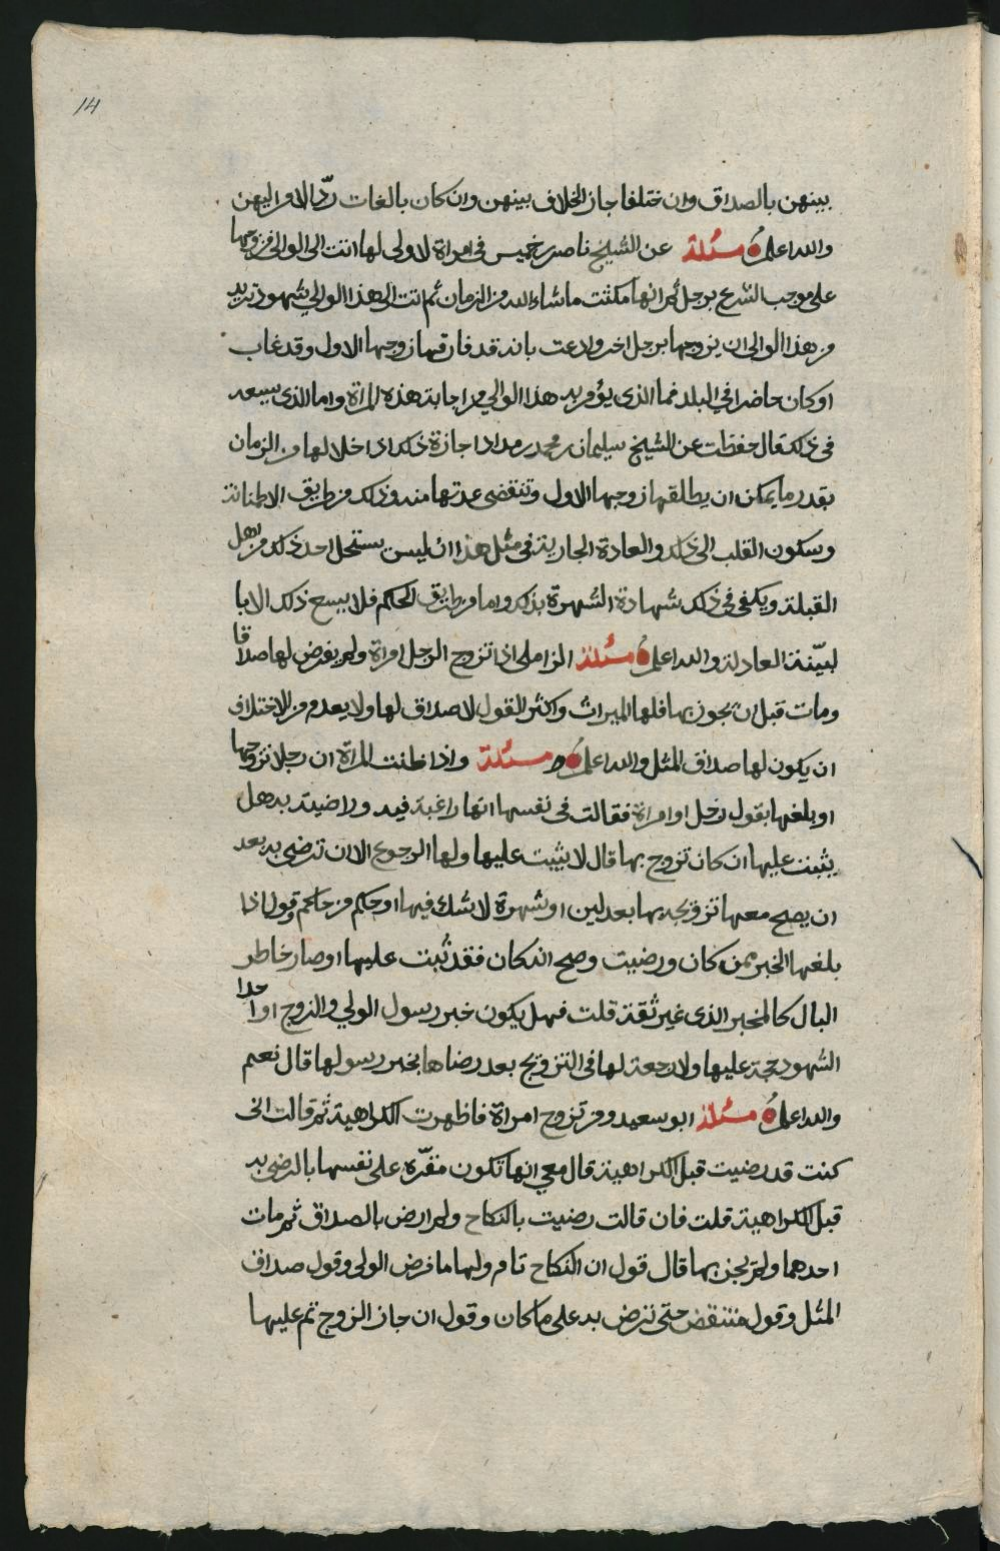 14
بينهن بالصداق وان ختلفا جاز الخلاف بينهن وان كان بالغات ردّ الامر اليهن
والله اعلم مسئلة عن الشيخ ناصر بن خميس في امراة لا ولي لها اتت الى الوالي فزوجها
على موجب الشرع برجل ثم انها مكثت ما شاء الله من الزمان ثم اتت الى هذا الوالي بشهود تريد
من هذا الوالي ان يزوجها برجل اخر وادعت بانه قد فارقها زوجها الاول وقد غاب
او كان حاضرا في البلد فما الذي يؤمر به هذا الوالي من اجابة هذه المراة وما الذي يسعه
في ذلك قال حفظت عن الشيخ سليمان بن محمد بن مداد اجازة ذلك اذا خلا لها من الزمان
بقدر ما يمكن ان يطلقها زوجها الاول وتنقضي عدتها منه وذلك من طريق الاطمئنانة
وسكون القلب الى ذلك والعادة الجارية في مثل هذا ان ليس يستحل احد ذلك من اهل
القبلة ويكفي في ذلك شهادة الشهرة بذلك واما من طريق الحكم فلا يسع ذلك الا با
لبيّنة العادلة والله اعلم مسئلة الزاملي اذا تزوج الرجل امراة ولم يفرض لها صداقا
ومات قبل ان يجوز بها فلها الميراث واكثر القول لا صداق لها ولا يعدم من الاختلاف
ان يكون لها صداق المثل والله اعلم مسئلة واذا ظنت المراة ان رجلا تزوجها
او بلغها بقول رجل او امراة فقالت في نفسها انها راغبة فيه وراضية به هل
يثبت عليها ان كان تزوج بها قال لا يثبت عليها ولها الرجوع الا ان ترضى به بعد
ان يصح معها تزويجه بها بعدلين او شهرة لا شك فيها او حكم من حاكم وقول اذا
بلغها الخبر ممن كان ورضيت وصح انه كان فقد ثبت عليها او صار خاطر
البال كالمخبر الذي غير ثقة قلت فهل يكون خبر رسول الولي والزوج او احدا
الشهود حجة عليها ولا رجعة لها في التزويج بعد رضاها بخبر رسولها قال نعم
والله اعلم مسئلة ابو سعيد ومن تزوج امراة فاظهرت الكراهية ثم قالت اني
كنت قد رضيت قبل الكراهية قال معي انها تكون مقرّه على نفسها بالرضى به
قبل الكراهية قلت فان قالت رضيت بالنكاح ولم ارض بالصداق ثم مات
احدهما ولم يجز بها قال قول ان النكاح تام ولها ما فرض الولي وقول صداق
المثل وقول منتقض حتى ترض به على ما كان وقول ان جاز الزوج تم عليها